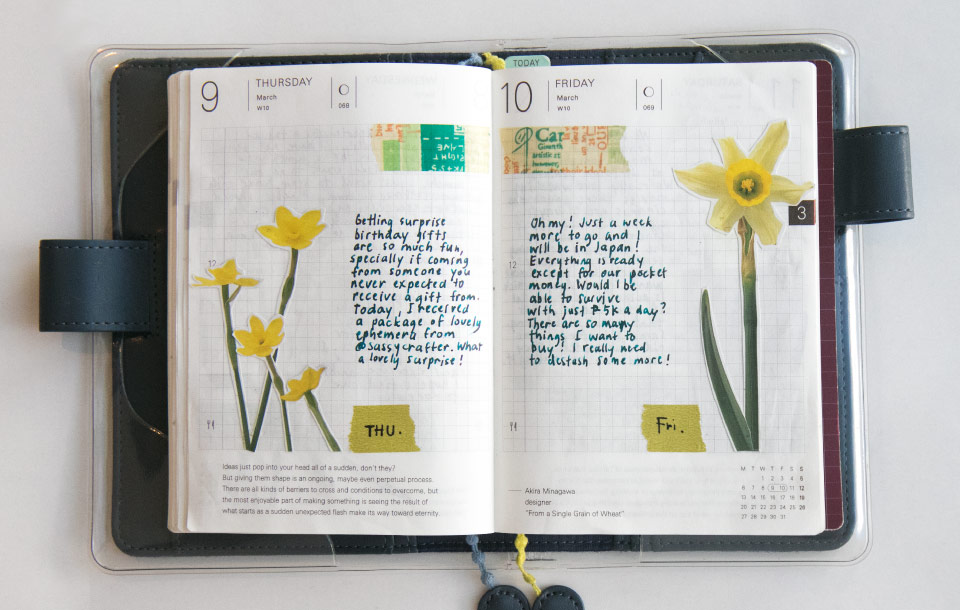 TODAY
9
THURSDAY
March
W10
069
Getting surprise
birthday gifts
are so much fun,
specially if coming
from someone you
never expected to
receive a gift from.
Today, I received
a package of lovely
ephemera from
@sassycrafter. What
a lovely surprise!
12
THU.
Ideas just pop into your head all of a sudden, don't they?
But giving them shape is an ongoing, maybe even perpetual process.
There are all kinds of barriers to cross and conditions to overcome, but
the most enjoyable part of making something is seeing the result of
what starts as a sudden unexpected flash make its way toward eternity.
10
FRIDAY
March
W10
069
Car
3
Oh my! Just a week
more to go and I
will be in Japan!
Everything is ready
except for our pocket
money. Would I be
able to survive
with just ₱5k a day?
There are so many
things I want to
buy! I really need
to destash some more!
12
Fri.
Akira Minagawa
designer
"From a Single Grain of Wheat"
M T W T F S S
1 2 3 4 5
6 7 8 9 10 11 12
13 14 15 16 17 18 19
20 21 22 23 24 25 26
27 28 29 30 31